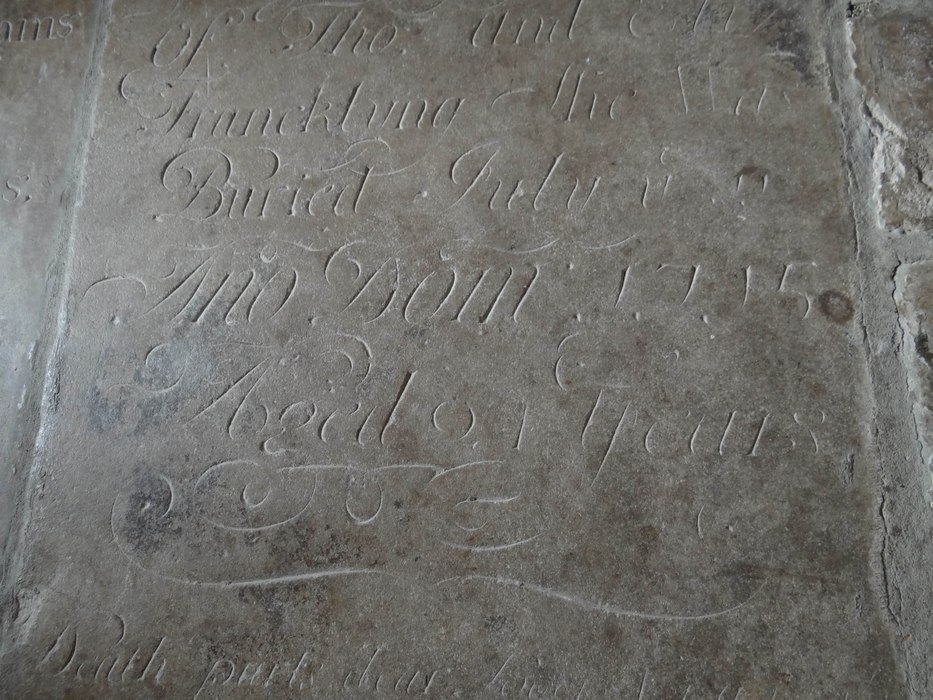 ams
Of Tho: and
Francklyng Who Was
Buried July
s;
Año Dom̃: 1715
Aged 21 Years
Death parts dear